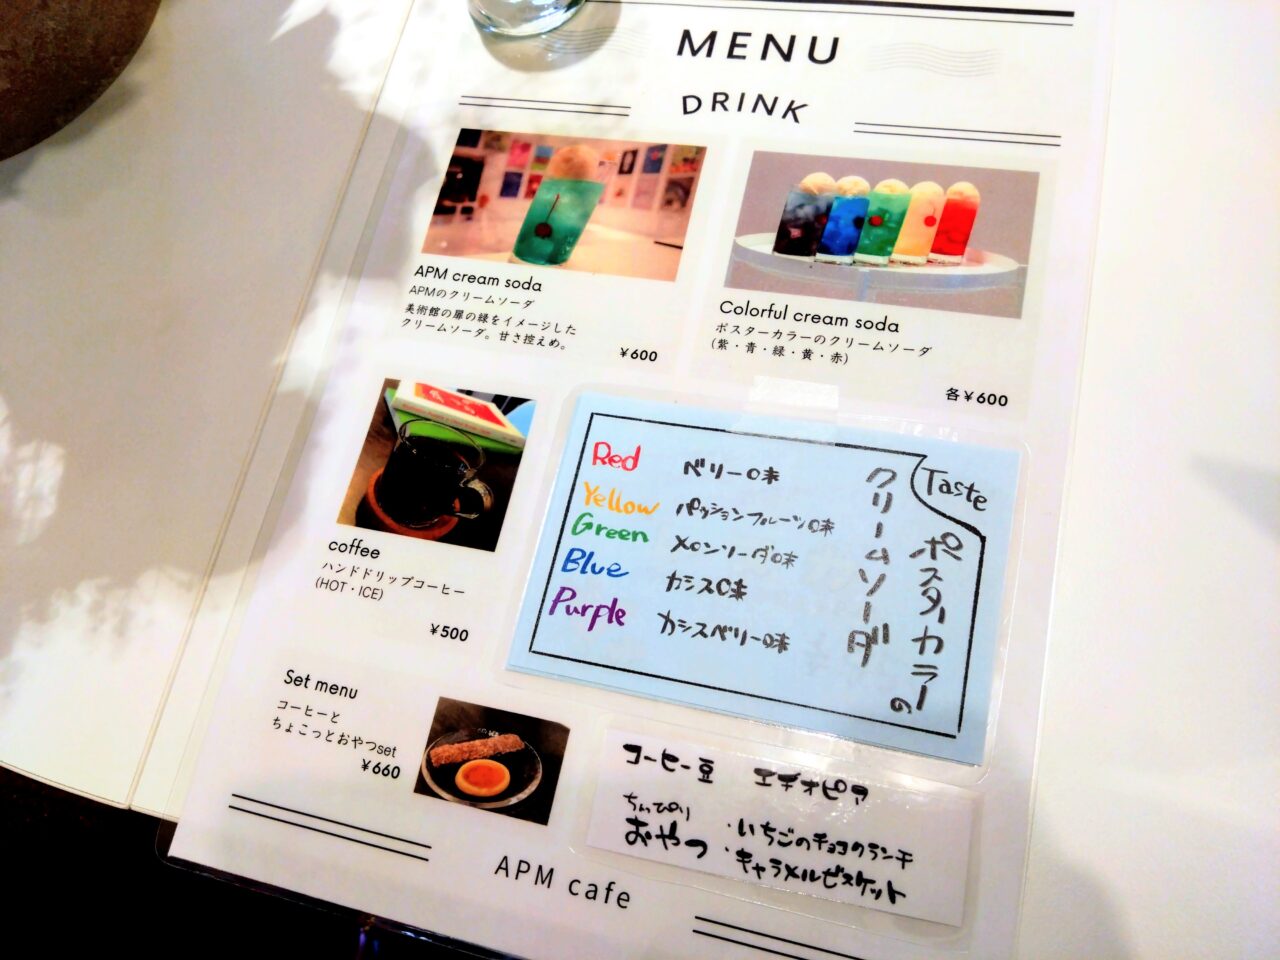 MENU
DRINK
APM cream soda
APMのクリームソーダ
美術館の扉の緑をイメージした
クリームソーダ。甘さ控えめ。
¥600
Colorful cream soda
ポスターカラーのクリームソーダ
(紫・青・緑・黄・赤)
各¥600
coffee
ハンドドリップコーヒー
(HOT・ICE)
¥500
Taste
ポスターカラーの
クリームソーダ
Red ベリー味
Yellow パッションフルーツ味
Green メロンソーダ味
Blue カシス味
Purple カシスベリー味
Set menu
コーヒーと
ちょこっとおやつset
¥660
コーヒー豆 エチオピア
ちょっぴり
おやつ ・いちごのチョコクランチ
・キャラメルビスケット
APM cafe